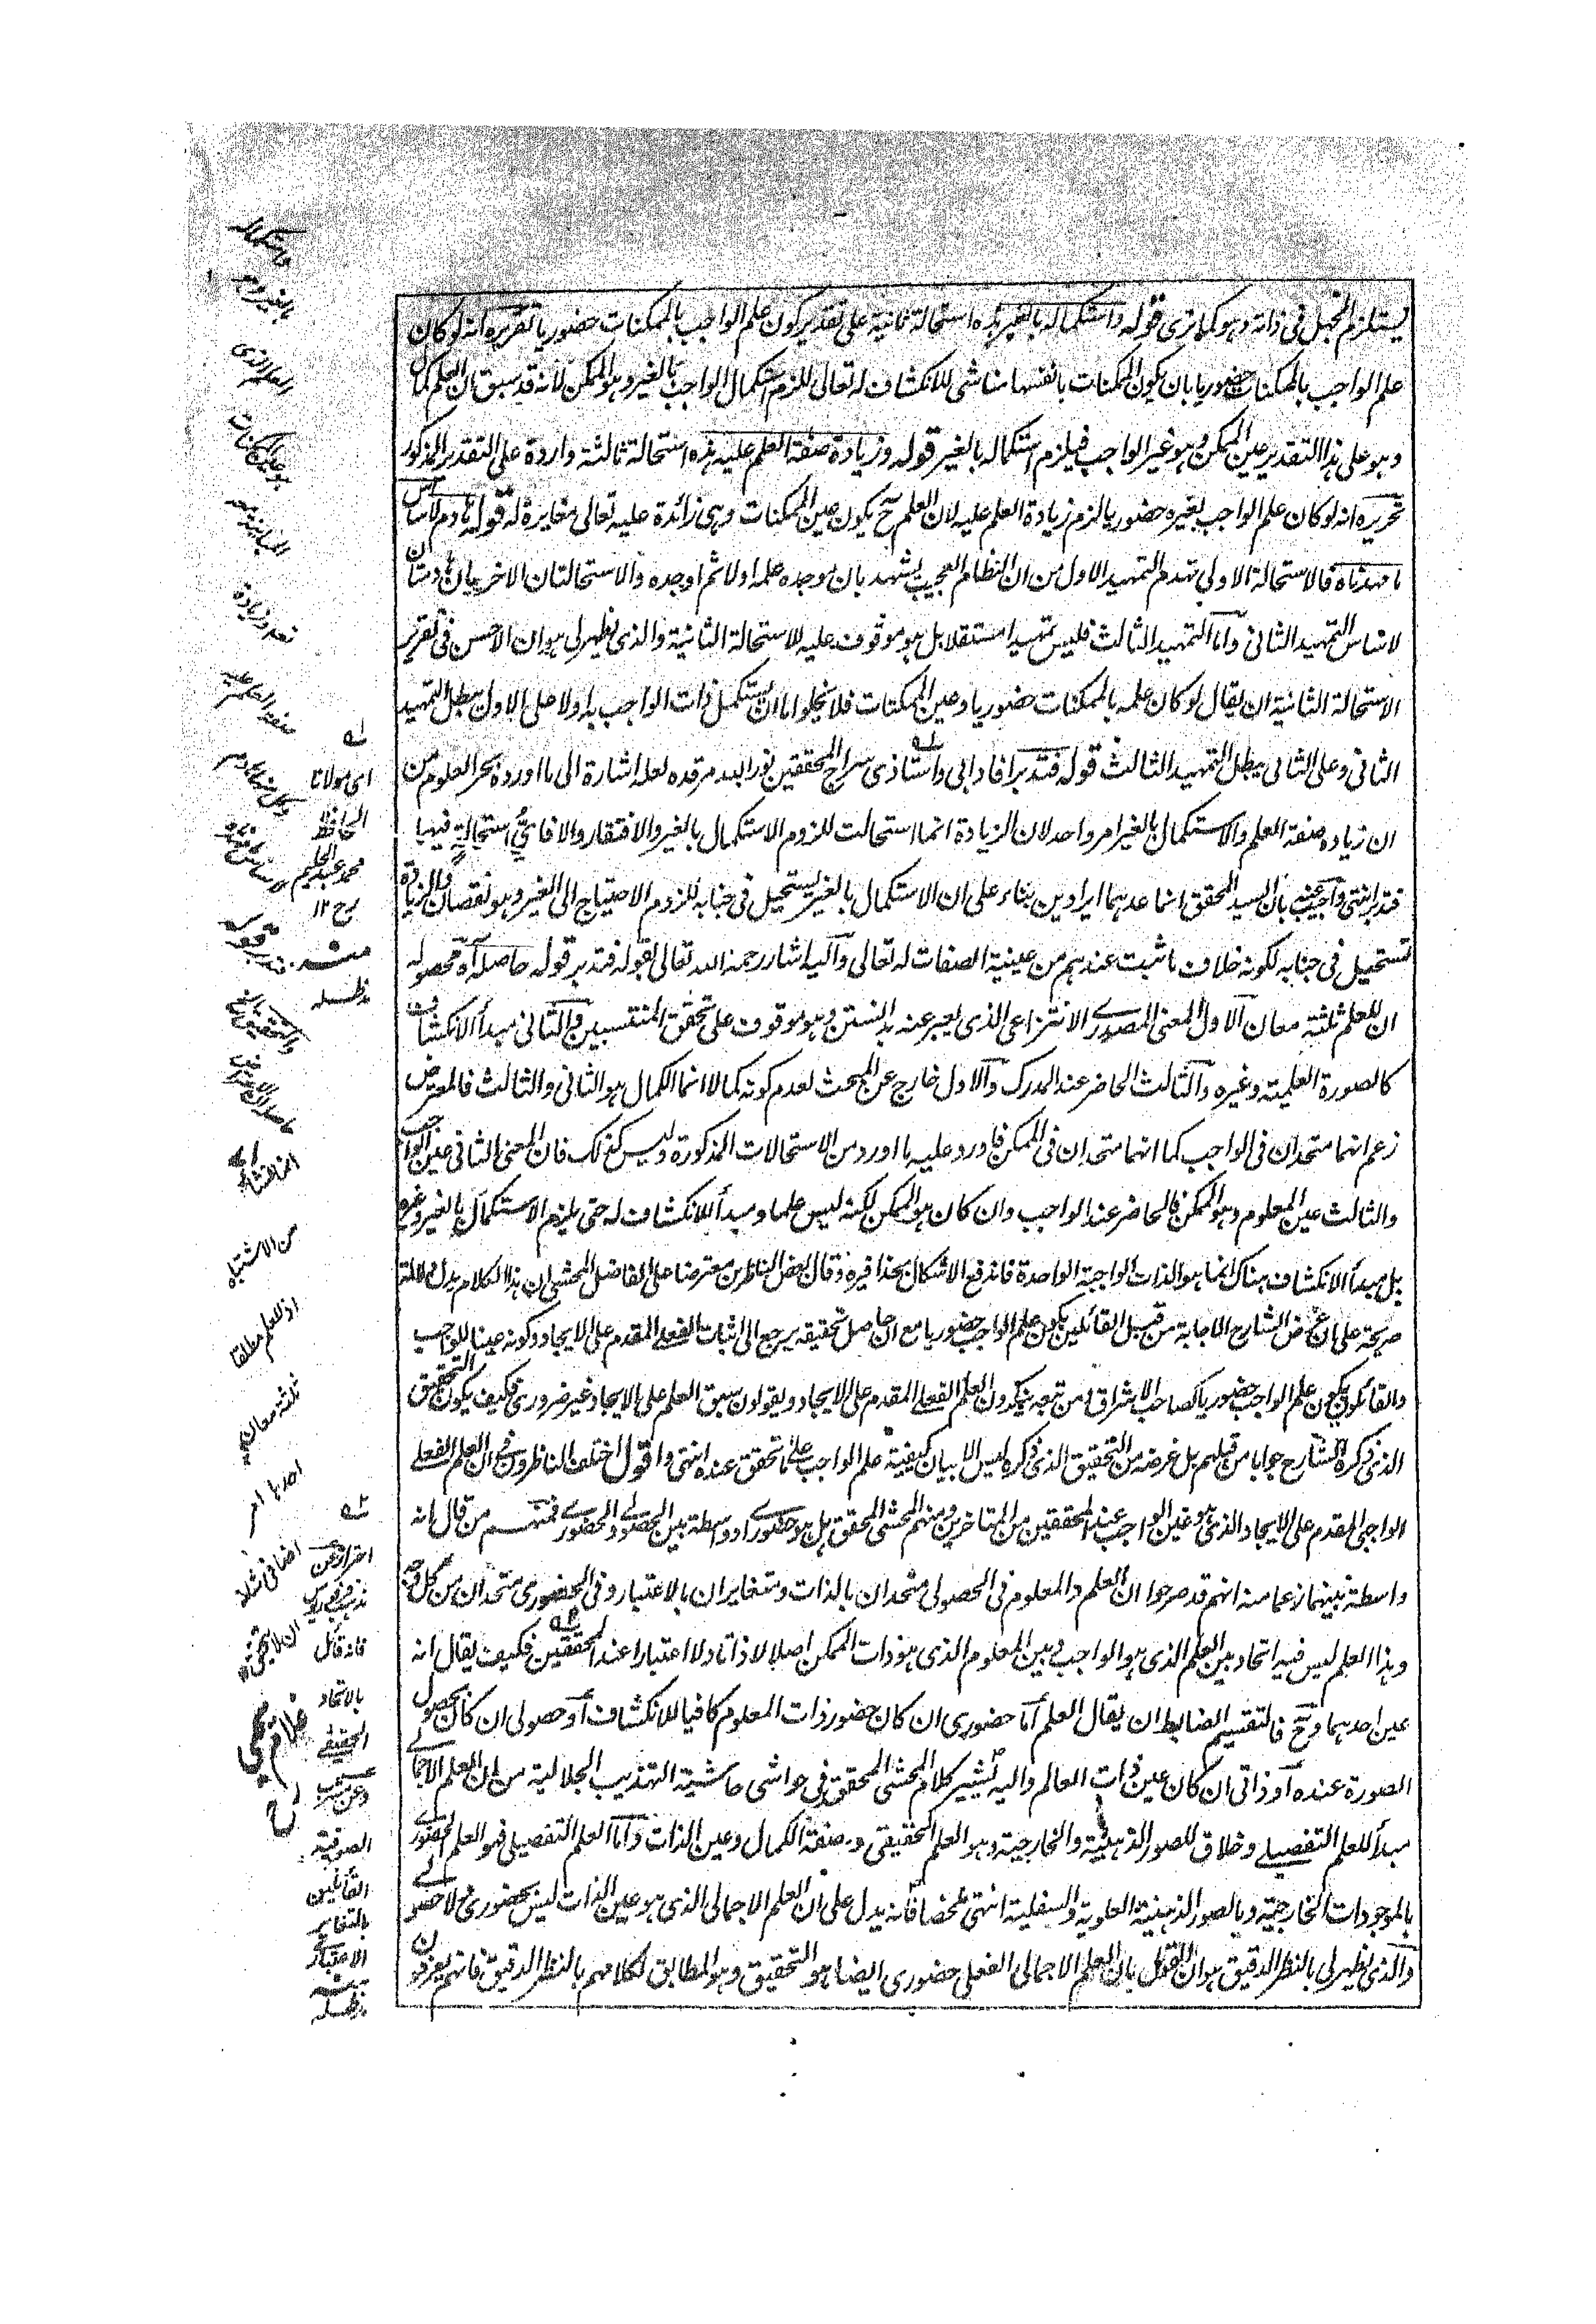 يستلزم الجهل فى ذاته وهو كما ترى قوله واستكماله بالغير هذه استحالة ثانية على تقدير كون علم الواجب بالممكنات حضوريا تقريره انه لو كان
علم الواجب بالممكنات حضوريا بان يكون الممكنات بانفسها مناشى للانكشاف له تعالى للزم استكمال الواجب بالغير وهو الممكن لانه قد سبق ان العلم كمال
وهو على هذا التقدير عين الممكن وهو غير الواجب فيلزم استكماله بالغير قوله وزيادة صفة العلم عليه هذه استحالة ثالثة واردة على التقدير المذكور
تحريره انه لو كان علم الواجب بغيره حضوريا لزم زيادة العلم عليه لان العلم ح يكون عين الممكنات وهى زائدة عليه تعالى مغايرة له قوله هادم لاساس
ما مهدناه فالاستحالة الاولى تهدم التمهيد الاول من ان النظام العجيب يشهد بان موجده علمه اولا ثم اوجده والاستحالتان الاخريان هادمتان
لاساس التمهيد الثانى واما التمهيد الثالث فليس تمهيدا مستقلا بل هو موقوف عليه للاستحالة الثانية والذى يظهر لى هو ان الاحسن فى تقرير
الاستحالة الثانية ان يقال لو كان علمه بالممكنات حضوريا وعين الممكنات فلا يخلوا ما ان يستكمل ذات الواجب به اولا على الاول يبطل التمهيد
الثانى وعلى الثانى يبطل التمهيد الثالث قوله فتدبر افاد ابى واستاذى سراج المحققين نور الله مرقده لعله اشارة الى ما اورده بحر العلوم من
ان زيادة صفة العلم والاستكمال بالغير امر واحد لان الزيادة انما استحالت للزوم الاستكمال بالغير والافتقار والا فاى استحالة فيها
فتدبر انتهى واجيب عنه بان السيد المحقق انما عدهما ايرادين بناء على ان الاستكمال بالغير يستحيل فى جنابه للزوم الاحتياج الى الغير وهو نقصان والزيادة
تستحيل فى جنابه لكونه خلاف ما ثبت عندهم من عينية الصفات له تعالى واليه اشار رحمه الله تعالى بقوله فتدبر قوله حاصله آه محصوله
ان للعلم ثلثة معان الاول المعنى المصدرى الانتزاعى الذى يعبر عنه بدانستن وهو موقوف على تحقق المنتسبين والثانى مبدأ الانكشاف
كالصورة العلمية وغيره والثالث الحاضر عند المدرك والاول خارج عن المبحث لعدم كونه كمالا انما الكمال هو الثانى والثالث فالمعترض
زعم انهما متحدان فى الواجب كما انهما متحدان فى الممكن فاورد عليه ما اورد من الاستحالات المذكورة وليس كذلك فان المعنى الثانى عين الواجب
والثالث عين المعلوم وهو الممكن فالحاضر عند الواجب وان كان هو الممكن لكنه ليس علما ومبدأ للانكشاف له حتى يلزم الاستكمال بالغير وغيره
بل مبدأ الانكشاف هناك انما هو الذات الواجبة الواحدة فاندفع الاشكال بحذافيره وقال بعض الناظرين معترضا على الفاضل المحشى ان هذا الكلام يدل دلالة
صريحة على ان غرض الشارح الاجابة من قبل القائلين بكون علم الواجب حضوريا مع ان حاصل تحقيقه يرجع الى اثبات الفعلى المقدم على الايجاد وكونه عينا للواجب
والقائلون بكون علم الواجب حضوريا كصاحب الاشراق ومن تبعه ينكرون العلم الفعلى المقدم على الايجاد ويقولون سبق العلم على الايجاد غير ضرورى فكيف يكون التحقيق
الذى ذكره الشارح جوابا من قبلهم بل غرضه من التحقيق الذى ذكره ليس الا بيان كيفية علم الواجب على ما تحقق عنده انتهى واقول اختلف الناظرون فى ان العلم الفعلى
الواجبى المقدم على الايجاد الذى هو عين الواجب عند المحققين من المتاخرين ومنهم المحشى المحقق هل هو حضورى او واسطة بين الحصولى والحضورى فمنهم من قال انه
واسطة بينهما زعما منه انهم قد صرحوا ان العلم والمعلوم فى الحصولى متحدان بالذات ومتغايران بالاعتبار وفى الحضورى متحدان من كل وجه
وهذا العلم ليس فيه اتحاد بين العلم الذى هو الواجب وبين المعلوم الذى هو ذات الممكن اصلا لا ذاتا ولا اعتبارا عند المحققين فكيف يقال انه
عين احدهما وح فالتقسيم الضابط ان يقال العلم اما حضورى ان كان حضور ذات المعلوم كافيا للانكشاف او حصولى ان كان بحصول
الصورة عنده او ذاتى ان كان عين ذات العالم واليه يشير كلام المحشى المحقق فى حواشى حاشية التهذيب الجلالية من ان العلم الاجمالى
مبدأ للعلم التفصيلى وخلاق للصور الذهنية والخارجية وهو العلم الحقيقى وصفة الكمال وعين الذات واما العلم التفصيلى فهو العلم الحضورى
بالموجودات الخارجية وبالصور الذهنية العلوية والسفلية انتهى ملخصا فانه يدل على ان العلم الاجمالى الذى هو عين الذات ليس بحضورى ولا حصولى
والذى يظهر لى بالنظر الدقيق هو ان القول بان العلم الاجمالى الفعلى حضورى ايضا هو التحقيق وهو المطابق لكلامهم بالنظر الدقيق فانهم يعرفون
واستكماله
بالغير وهو
العلم الذى
هو عين الممكنات
نعم وزيادة
صفة العلم عليه
فتدبر قوله
من الاشتباه
اذ للعلم مطلقا
ثلثة معان
احدها امر
اضافى
له
اى مولانا
الحافظ
محمد عبد الحليم
رح ١٢
منه
مد ظله
له
احتراز عن
مذهب فرفوريوس
فانه قائل
بالاتحاد
الحقيقى
وعن مذهب
الصوفية
القائلين
بالتغاير
الاعتبارى
منه
مد ظله